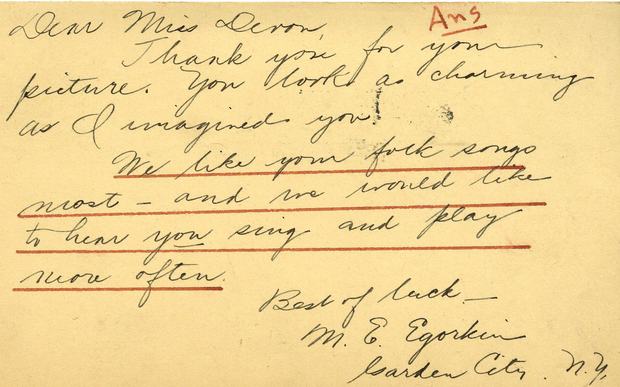 Ans
Dear Miss Devon,
Thank you for your
picture. You look as charming
as I imagined you
We like your folk songs
most - and we would like
to hear you sing and play
more often.
Best of luck -
M. E. Egorkin
Garden City, N.Y.